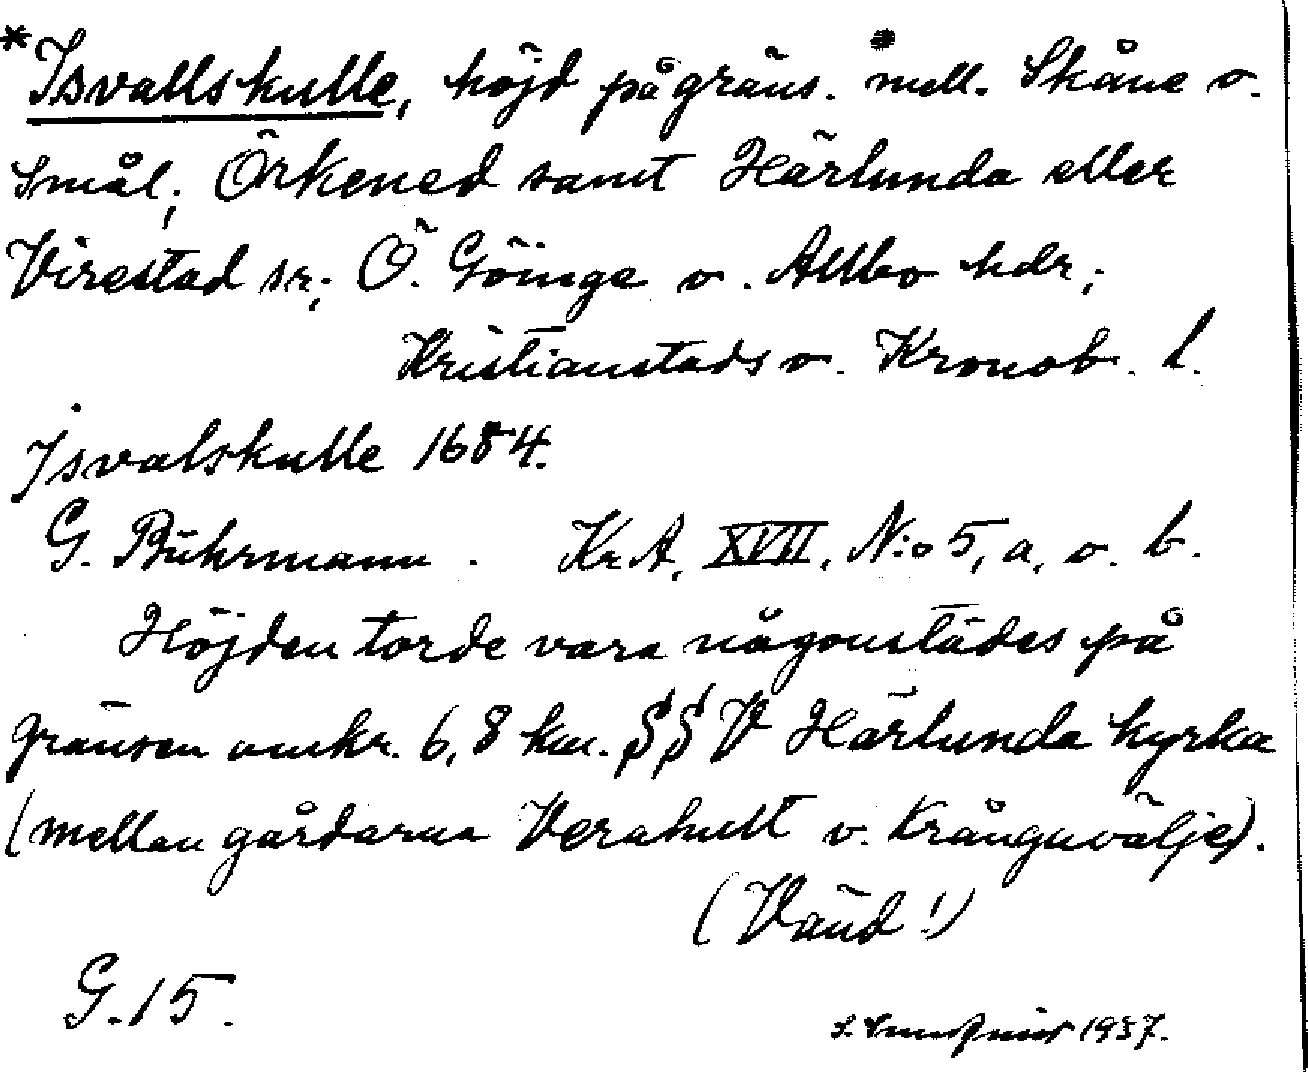 *Isvallskulle, höjd på gräns. mell. Skåne o.
Smål; Örkened samt Härlunda eller
Virestad sr; Ö. Göinge o. Allbo hdr;
Kristianstads o. Kronob. l.
Isvalskulle 1684.
G. Buhrmann. Kr.A. XVII, N:o 5, a. o. b.
Höjden torde vara någonstädes på
gränsen omkr. 6,8 km. SSV Härlunda kyrka
(mellan gårdarna Verahult o. Krångvälje).
(Vänd!)
G. 15.
1937.